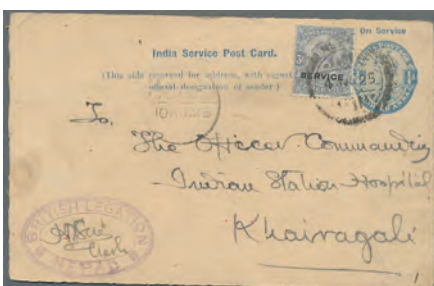 On Service
India Service Post Card.
(This side reserved for address, with
official designation of sender)
SERVICE
To,
The Officer Commanding
Indian Station Hospital
Khairagali
BRITISH LEGATION
NEPAL
Clerk